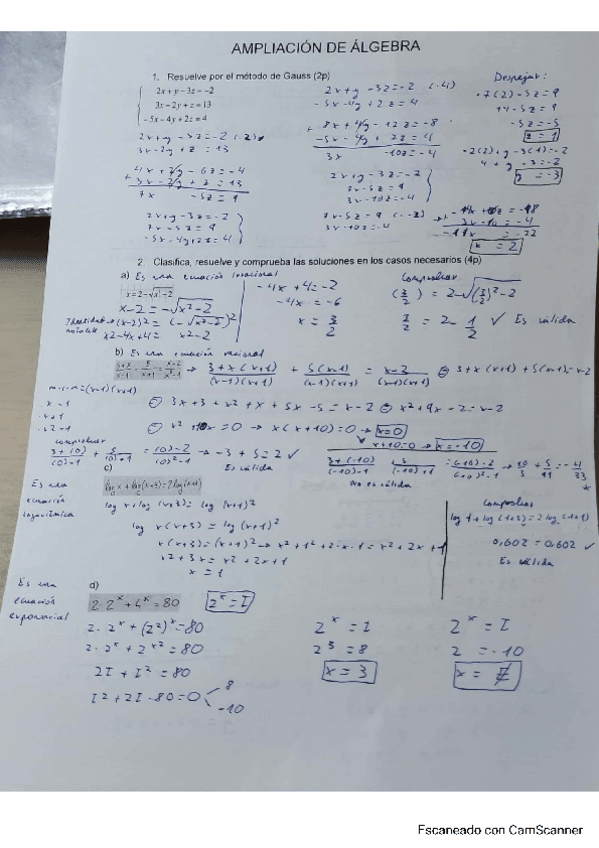 AMPLIACIÓN DE ÁLGEBRA
1. Resuelve por el método de Gauss (2p)
2x+y-3z=-2
3x-2y+z=13
-5x-4y+2z=4
2x+y-3z=-2 (·2)
3x-2y+z=13
4x+2y-6z=-4
+3x-2y+z=13
7x -5z=9
2x+y-3z=-2
7x-5z=9
-5x-4y+2z=4
2x+y-3z=-2 (·4)
-5x-4y+2z=4
+ 8x+4y-12z=-8
-5x-4y+2z=4
3x -10z=-4
2x+y-3z=-2
7x-5z=9
3x-10z=-4
7x-5z=9 (·-2)
3x-10z=-4
Despejar:
·7(2)-5z=9
14-5z=9
-5z=-5
z=1
·2(2)+y-3(1)=-2
4+y-3=-2
y=-3
-14x+10z=-18
3x-10z=-4
-11x=-22
x=2
2. Clasifica, resuelve y comprueba las soluciones en los casos necesarios (4p)
a) Es una ecuación irracional
x=2-√x²-2
x-2=-√x²-2
(x-2)²=(-√x²-2)²
x²-4x+4=x²-2
-4x+4=-2
-4x=-6
x=3/2
Comprobar
(3/2)=2-√(3/2)²-2
3/2=2-1/2 ✓ Es válida
b) Es una ecuación racional
3+x/x-1 + 5/x+1 = x-2/x²-1 → 3+x(x+1)/(x-1)(x+1) + 5(x-1)/(x-1)(x+1) = x-2/(x-1)(x+1) ⊖ 3+x(x+1)+5(x-1)=x-2
m·c·m=(x-1)(x+1)
x-1
·x+1
·x²-1
⊖ 3x+3+x²+x+5x-5=x-2 ⊖ x²+9x-2=x-2
⊖ x²+10x=0 → x(x+10)=0 → x=0
x+10=0 → x=-10
comprobar
3+(0)/(0)-1 + 5/(0)+1 = (0)-2/(0)²-1 → -3+5=2 ✓
Es válida
3+(-10)/(-10)-1
No es válida
c)
Es una
ecuación
logarítmica
log x+log(x+3)=2log(x+1)
log x+log(x+3)=log(x+1)²
log x(x+3)=log(x+1)²
x(x+3)=(x+1)² → x²+1²+2·x·1=x²+2x+1
x²+3x=x²+2x+1
x=1
Comprobar
log 1+log(1+3)=2log(1+1)
0,602=0,602 ✓
Es válida
d)
Es una
ecuación
exponencial
2·2ˣ+4ˣ=80
2ˣ=I
2·2ˣ+(2²)ˣ=80
2·2ˣ+2ˣ²=80
2I+I²=80
I²+2I-80=0
8
-10
2ˣ=I
2³=8
x=3
2ˣ=I
2 =-10
x=∄
Escaneado con CamScanner